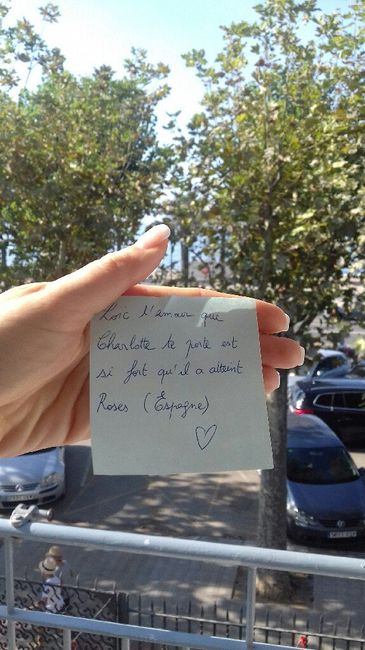 Loïc l'amour que
Charlotte te porte est
si fort qu'il a atteint
Roses (Espagne)